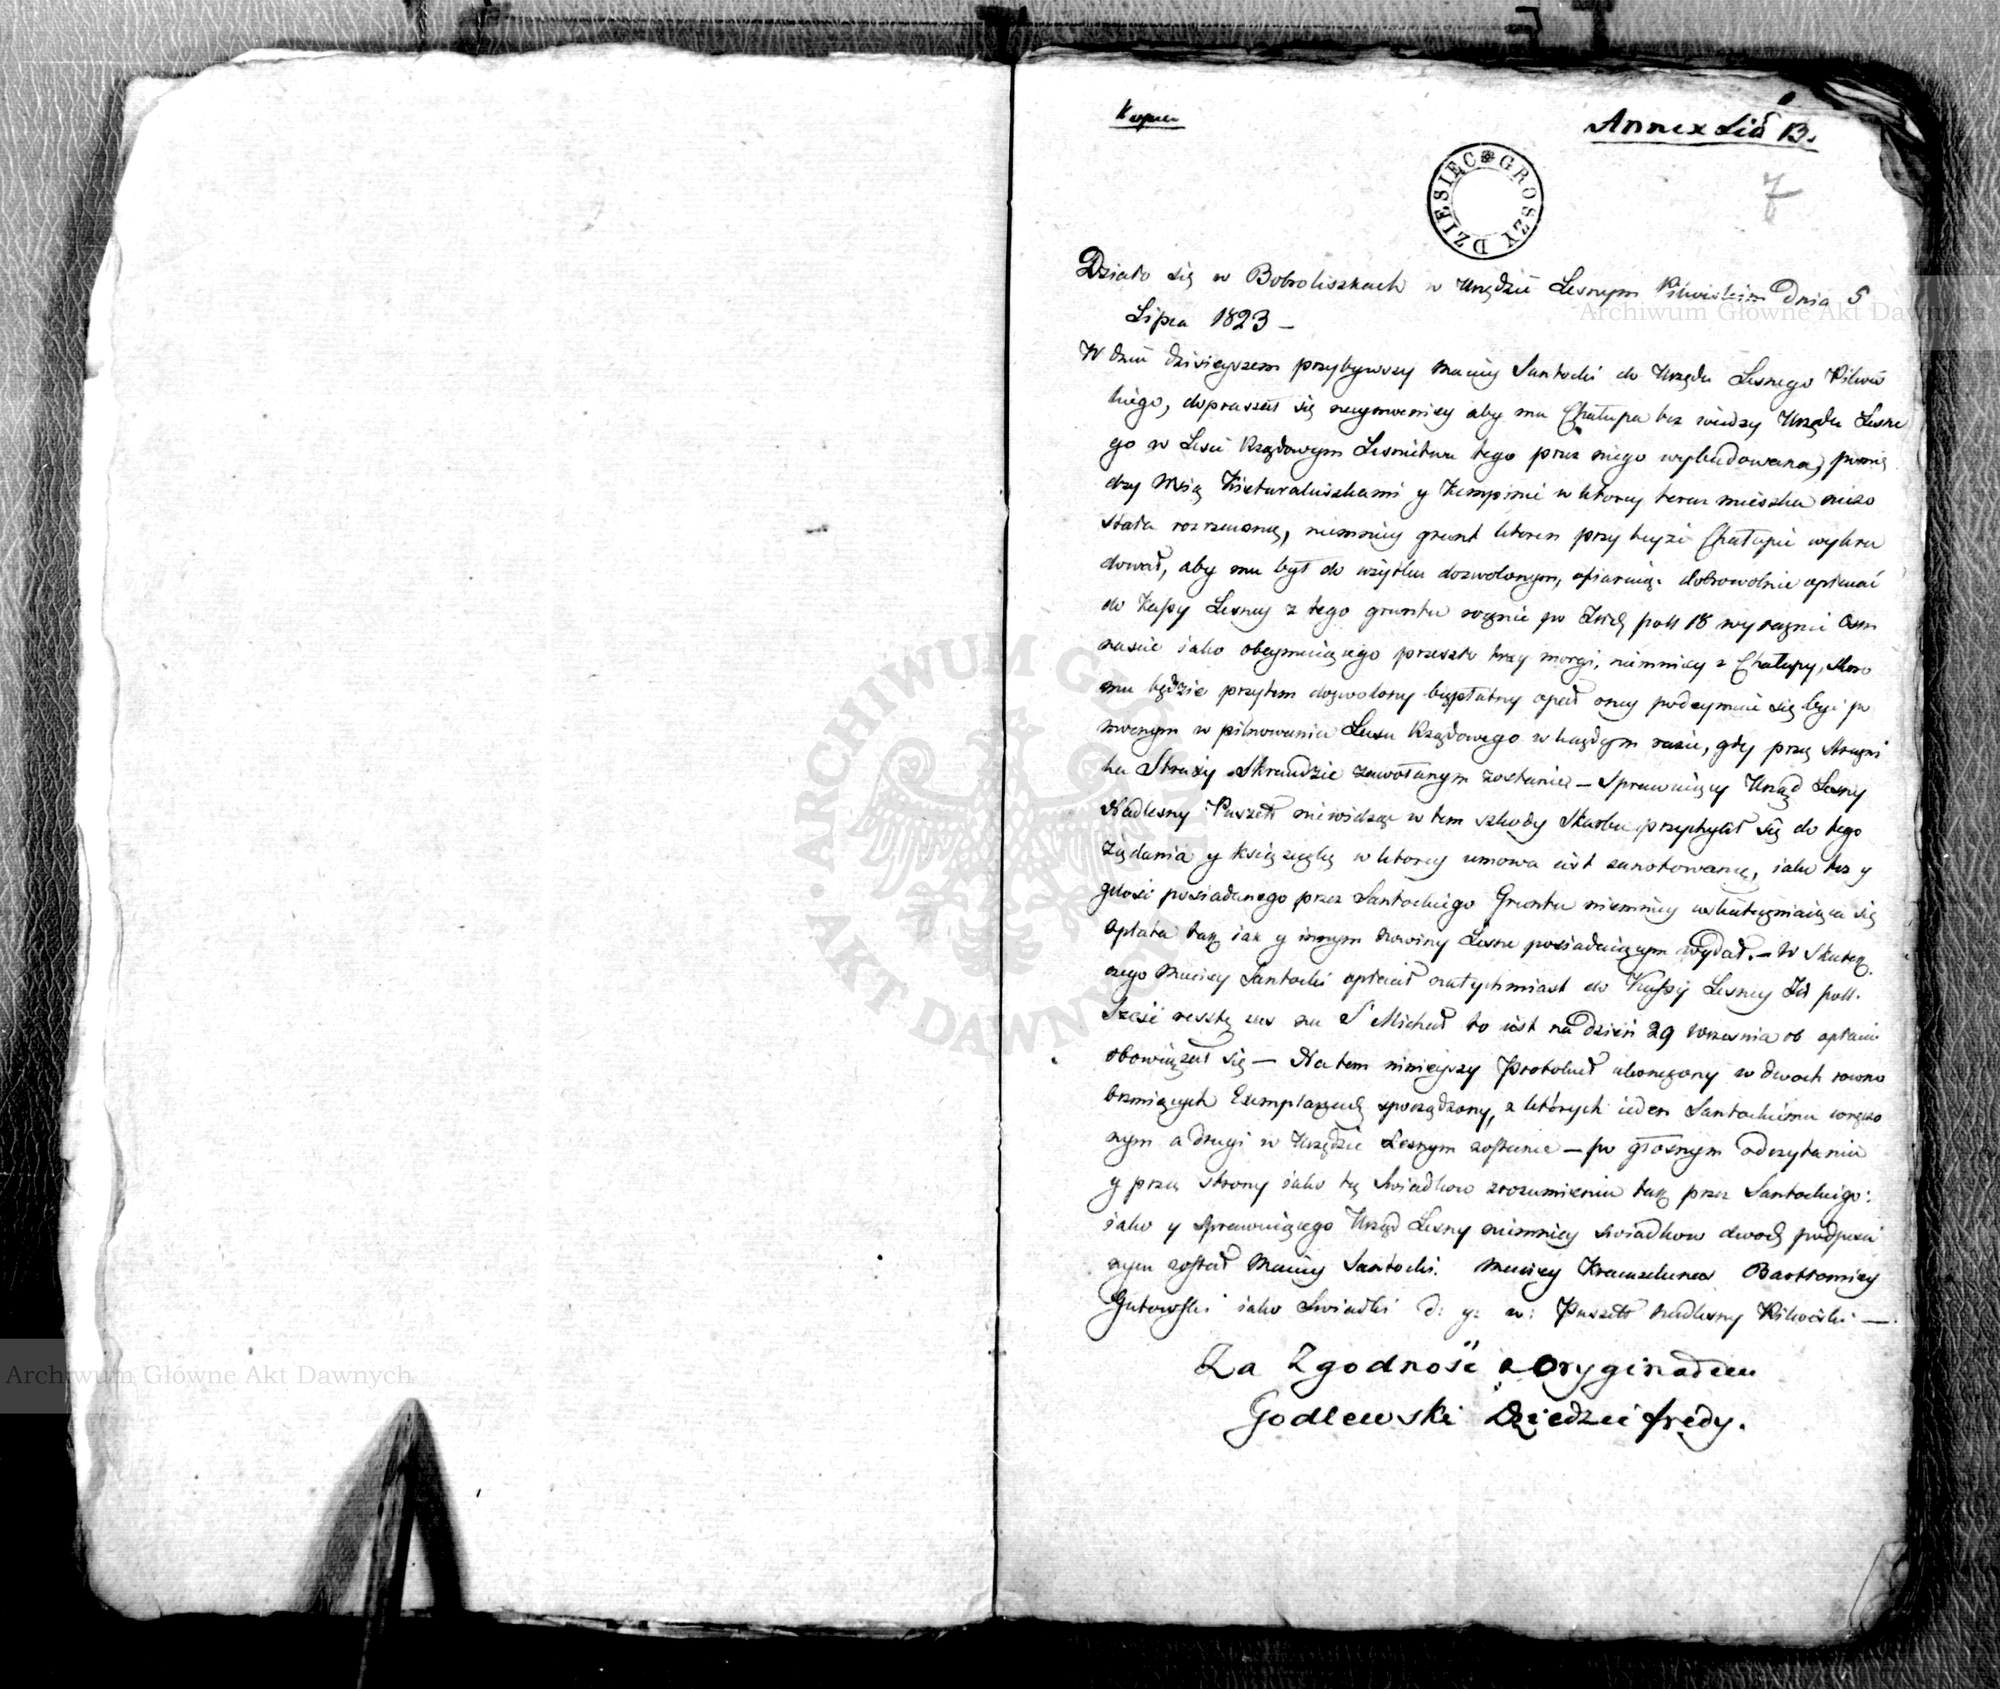 Kopia
Annex Lit B.
DZIESIĘC GROSZY
7
Działo się w Bobroliszkach w Urzędzie Lesnym Pilwiskim Dnia 5
Lipca 1823 —
W dniu dzisieyszem przybywszy Maciey Santocki do Urzędu Lesnego Pilwis
kiego, dopraszał się naymocniey aby mu Chałupa bez wiedzy Urzędu Lesne
go w Lesie Rządowym Lesnictwa tego przez niego wybudowana, pomię
dzy Wsią y w ktorey teraz mieszka niezo
stała rozrzuconą, niemniey grunt ktoren przy teyże Chałupie wykru
dował, aby mu był do użytku dozwolonym, ofiaruiąc dobrowolnie opłacać
do Kassy Lesney z tego gruntu rocznie po Złłtych poll 18 wyraznie Osm
nascie iako obeymuiącego przeszło trzy morgi, niemniey z Chałupy, skoro
mu będzie przytem dozwolony bezpłatny opał oney podeymuie się być po
mocnym w pilnowaniu Lasu Rządowego w każdym razie, gdy przez Strażni
ka Straży zawołanym zostanie — Sprawuiący Urząd Lesny
Nadlesny Puszett niewidząc w tem szkody Skarbu przychylił się do tego
żądania y książeczkę w ktorey umowa iest zanotowaną, iako też y
ilość posiadanego przez Santockiego Gruntu niemniey uskuteczniaiąca się
opłata tak iak y innym nowiny Lesne posiadaiącym wydał. — W Skutek
czego Maciey Santocki opłacił natychmiast do Kassy Lesney Złł poll.
Sześć resztę zas na S Michał to iest na dzień 29 Wrzesnia ob opłacić
obowiązał się — Na tem ninieyszy Protokuł ukonczony w dwoch rowno
brzmiących Exemplarzach sporządzony, z których ieden Santockiemu wręczo
nym a drugi w Urzędzie Lesnym zostanie — po głosnym odczytaniu
y przez strony iako też Swiadkow zrozumieniu tak przez Santockiego:
iako y sprawuiącego Urząd Lesny niemniey swiadkow dwoch podpisa
nym został Maciey Santocki. Maciey Bartłomiey
Gutowski iako Swiadki d: y: w: Puszett Nadlesny Pilwiski —
Za Zgodność z Oryginałem
Godlewski Dziedzic